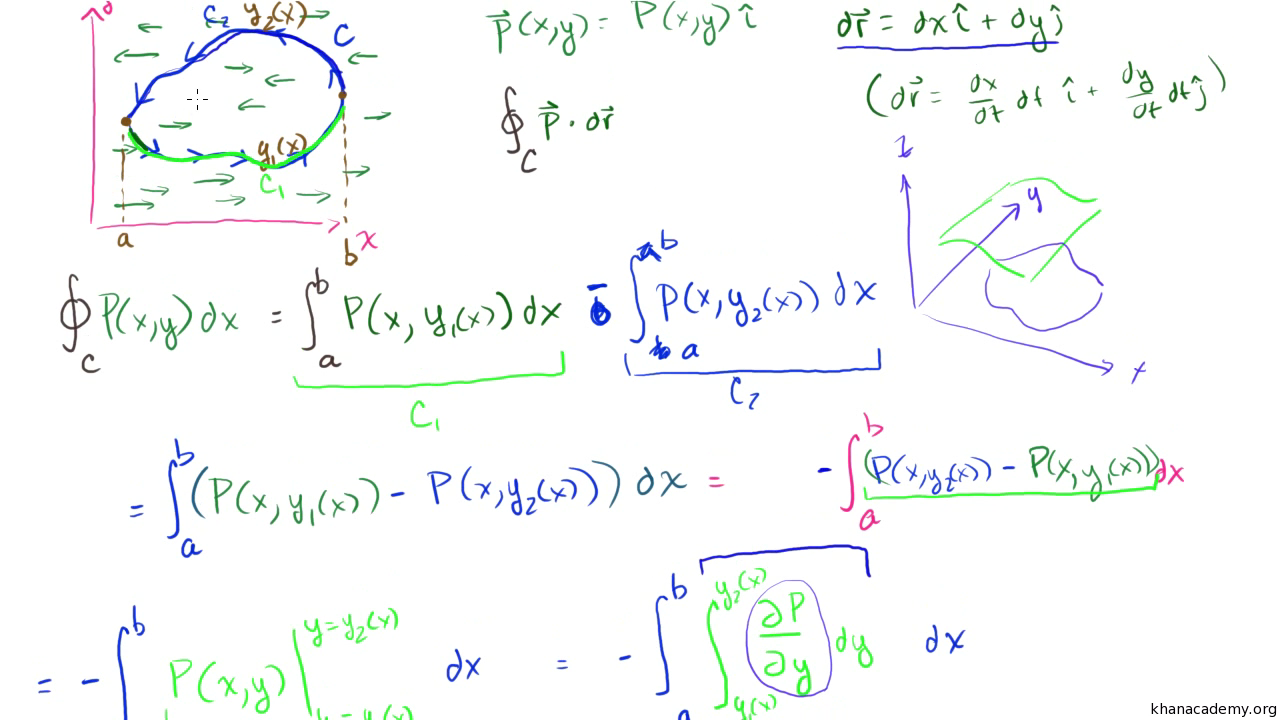 C₂ y₂(x)
C
y₁(x)
C₁
a b x
P⃗(x,y) = P(x,y) î
∮_C P⃗ · dr⃗
dr⃗ = dx î + dy ĵ
(dr⃗ = dx/dt dt î + dy/dt dt ĵ)
z
y
x
∮_C P(x,y) dx = ∫_a^b P(x, y₁(x)) dx - ∫_a^b P(x, y₂(x)) dx
C₁ C₂
= ∫_a^b (P(x, y₁(x)) - P(x, y₂(x))) dx = - ∫_a^b (P(x, y₂(x)) - P(x, y₁(x))) dx
= - ∫^b P(x,y) |^{y=y₂(x)} dx = - ∫_a^b ∫_{y₁(x)}^{y₂(x)} ∂P/∂y dy dx
khanacademy.org